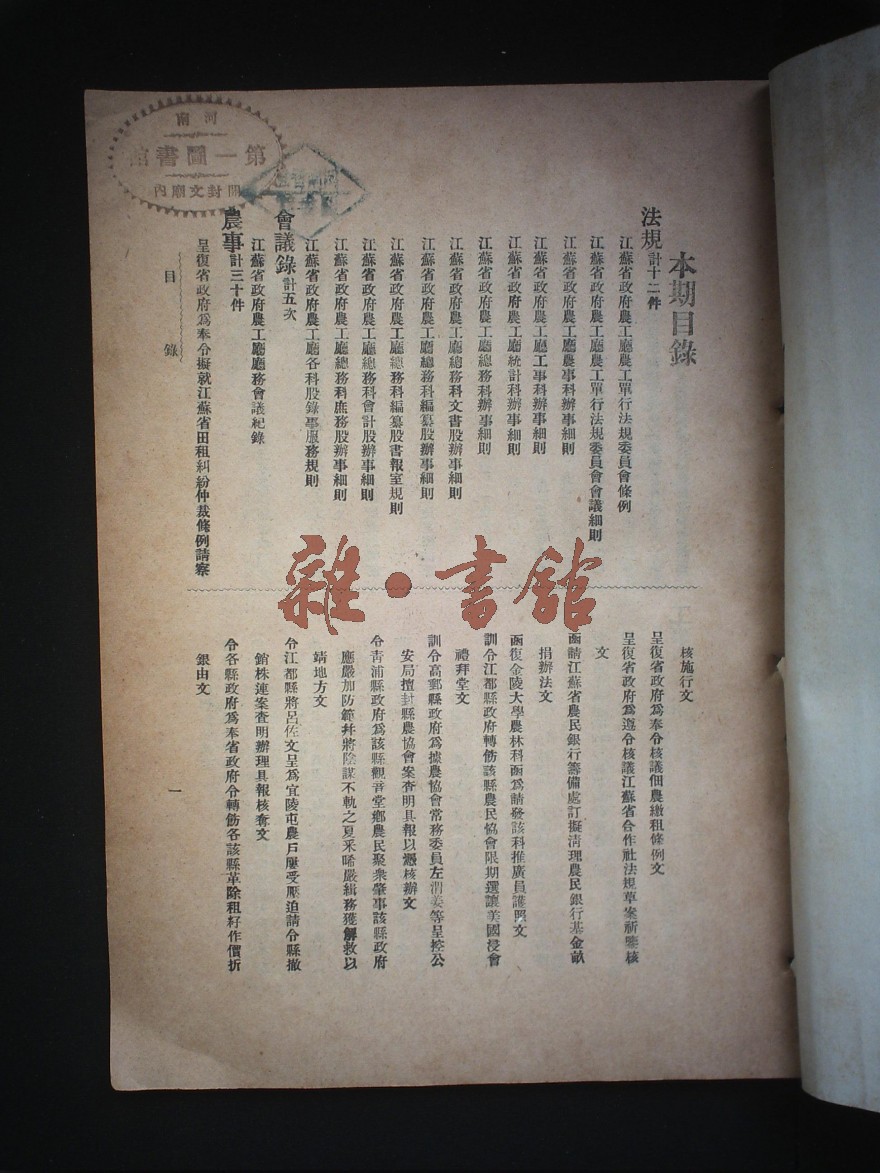 本期目錄
法規計十二件
江蘇省政府農工廳農工單行法規委員會條例
江蘇省政府農工廳農工單行法規委員會會議細則
江蘇省政府農工廳農事科辦事細則
江蘇省政府農工廳工事科辦事細則
江蘇省政府農工廳統計科辦事細則
江蘇省政府農工廳總務科辦事細則
江蘇省政府農工廳總務科文書股辦事細則
江蘇省政府農工廳總務科編纂股辦事細則
江蘇省政府農工廳總務科編纂股書報室規則
江蘇省政府農工廳總務科會計股辦事細則
江蘇省政府農工廳總務科庶務股辦事細則
江蘇省政府農工廳各科股錄事服務規則
會議錄計五次
江蘇省政府農工廳廳務會議紀錄
農事計三十件
呈復省政府爲奉令擬就江蘇省田租糾紛仲裁條例請察
核施行文
呈復省政府爲奉令核議佃農繳租條例文
呈復省政府爲遵令核議江蘇省合作社法規草案祈鑒核
文
函請江蘇省農民銀行籌備處訂擬清理農民銀行基金畝
捐辦法文
函復金陵大學農林科函爲請發該科推廣員護照文
訓令江都縣政府轉飭該縣農民協會限期還讓美國浸會
禮拜堂文
訓令高郵縣政府爲據農協會常務委員左渭姜等呈控公
安局擅封縣農協會案查明具報以憑核辦文
令青浦縣政府爲該縣觀音堂鄉農民聚衆肇事該縣政府
應嚴加防範幷將陰謀不軌之夏采晞嚴緝務獲解救以
靖地方文
令江都縣將呂佐文呈爲宜陵屯農戶屢受壓迫請令縣撤
銷株連案查明辦理具報核奪文
令各縣政府爲奉省政府令轉飭各該縣革除租籽作價折
銀由文
目錄
一
河南
第一圖書館
開封文廟內
雜·書館